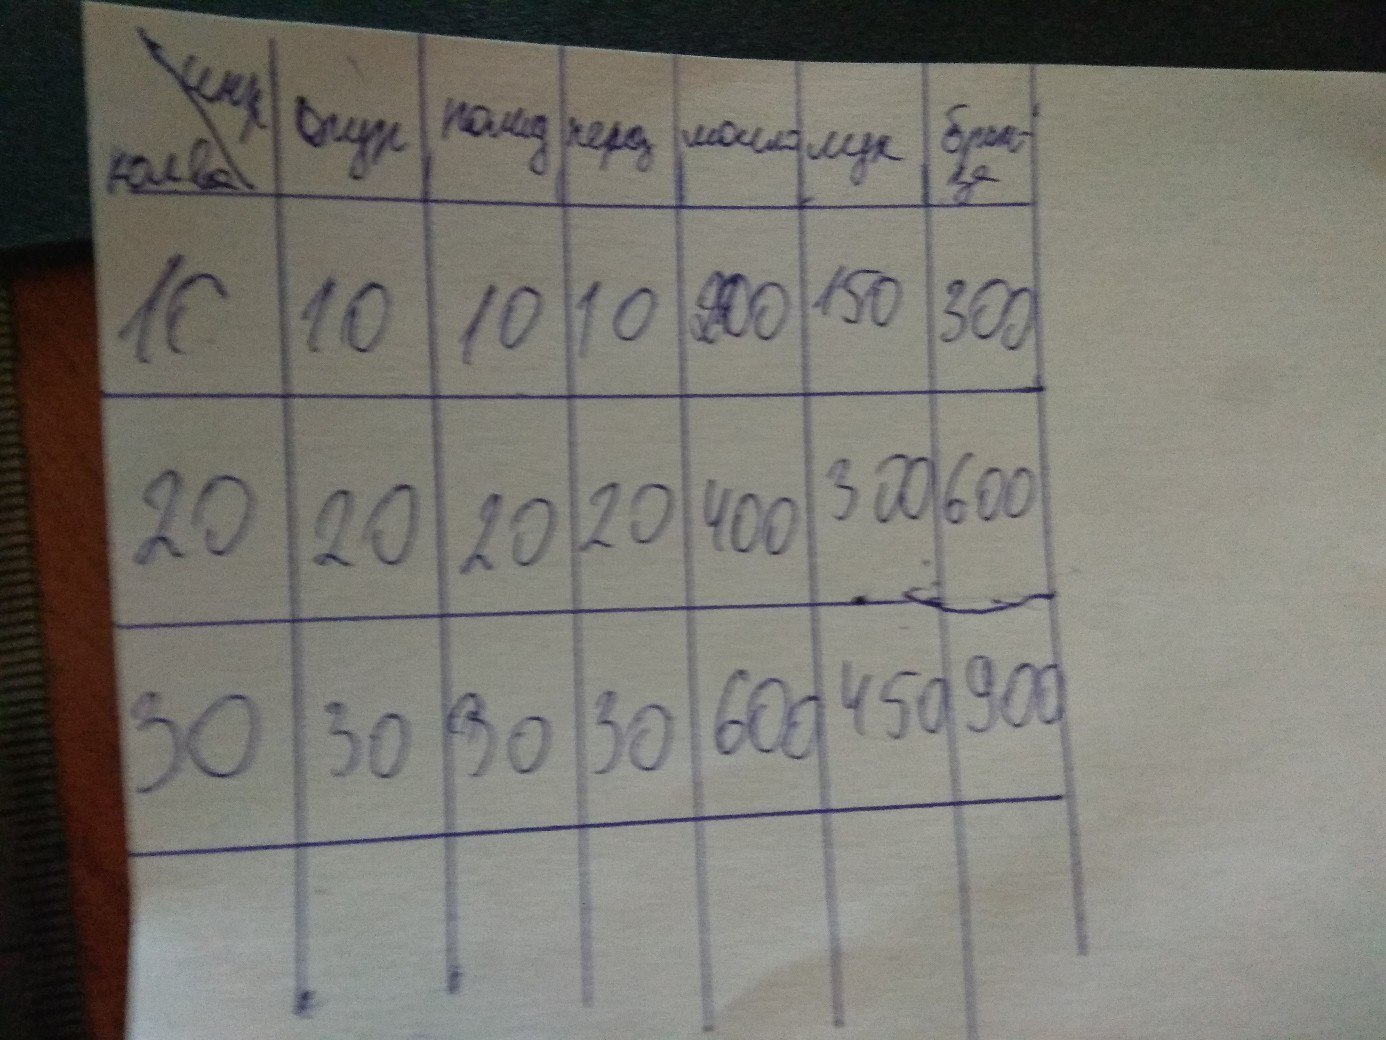 инг
кол-ва огур помид перец масло лук брын-
за
10 10 10 10 200 150 300
20 20 20 20 400 300 600
30 30 30 30 600 450 900